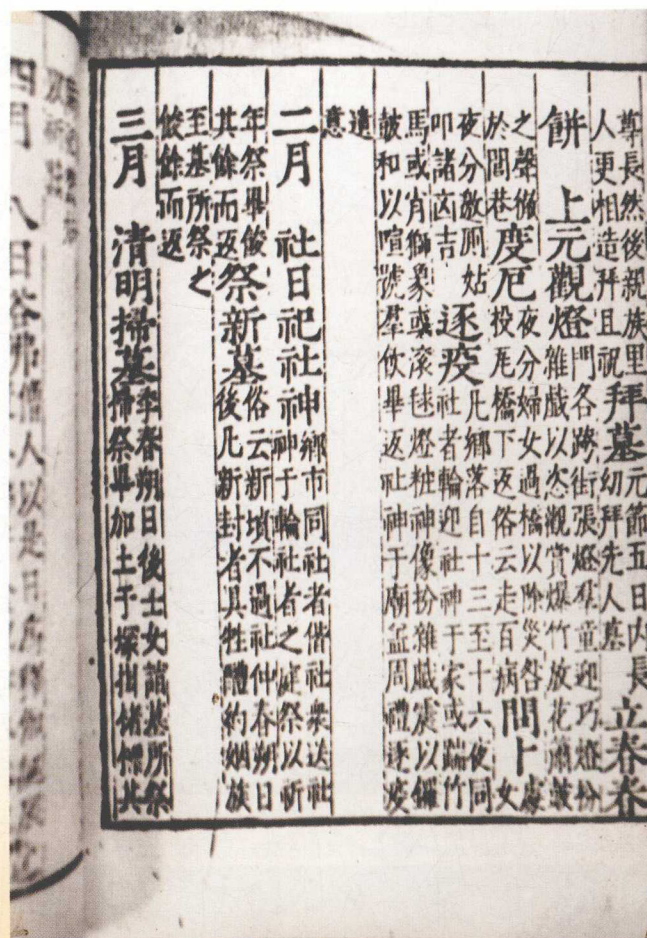 尊長然後親族里
人更相造拜且祝
拜墓
元節五日内長
幼拜先人墓
立春春
餅 上元觀燈
門各跨街張燈羣童迎巧燈扮
雜戲以恣觀賞爆竹放花簫鼓
之聲徹
於閭巷
度厄
夜分婦女過橋以除災咎
投厄橋下返俗云走百病
問卜
處
女
夜分啟厠姑
叩諸凶吉
逐疫
凡鄉落自十三至十六夜同
社者輪迎社神于家或踹竹
馬或肖獅象或滚毬燈粧神像扮雜戲震以鑼
鼓和以喧號羣伙畢返社神于廟盖周禮逐疫
遺
意
二月 社日祀社神
鄉市同社者偕社衆送社
神于輪社者之祭以祈
年祭畢餕
其餘而返
祭新墓
俗云新墳不過社仲春朔日
後凡新封者具牲醴約姻族
至墓所祭之
餕餘而返
三月 清明掃墓
季春朔日後士女詣墓所祭
掃祭畢加土于塚掛楮錢其
四月 八日浴佛僧人以是日